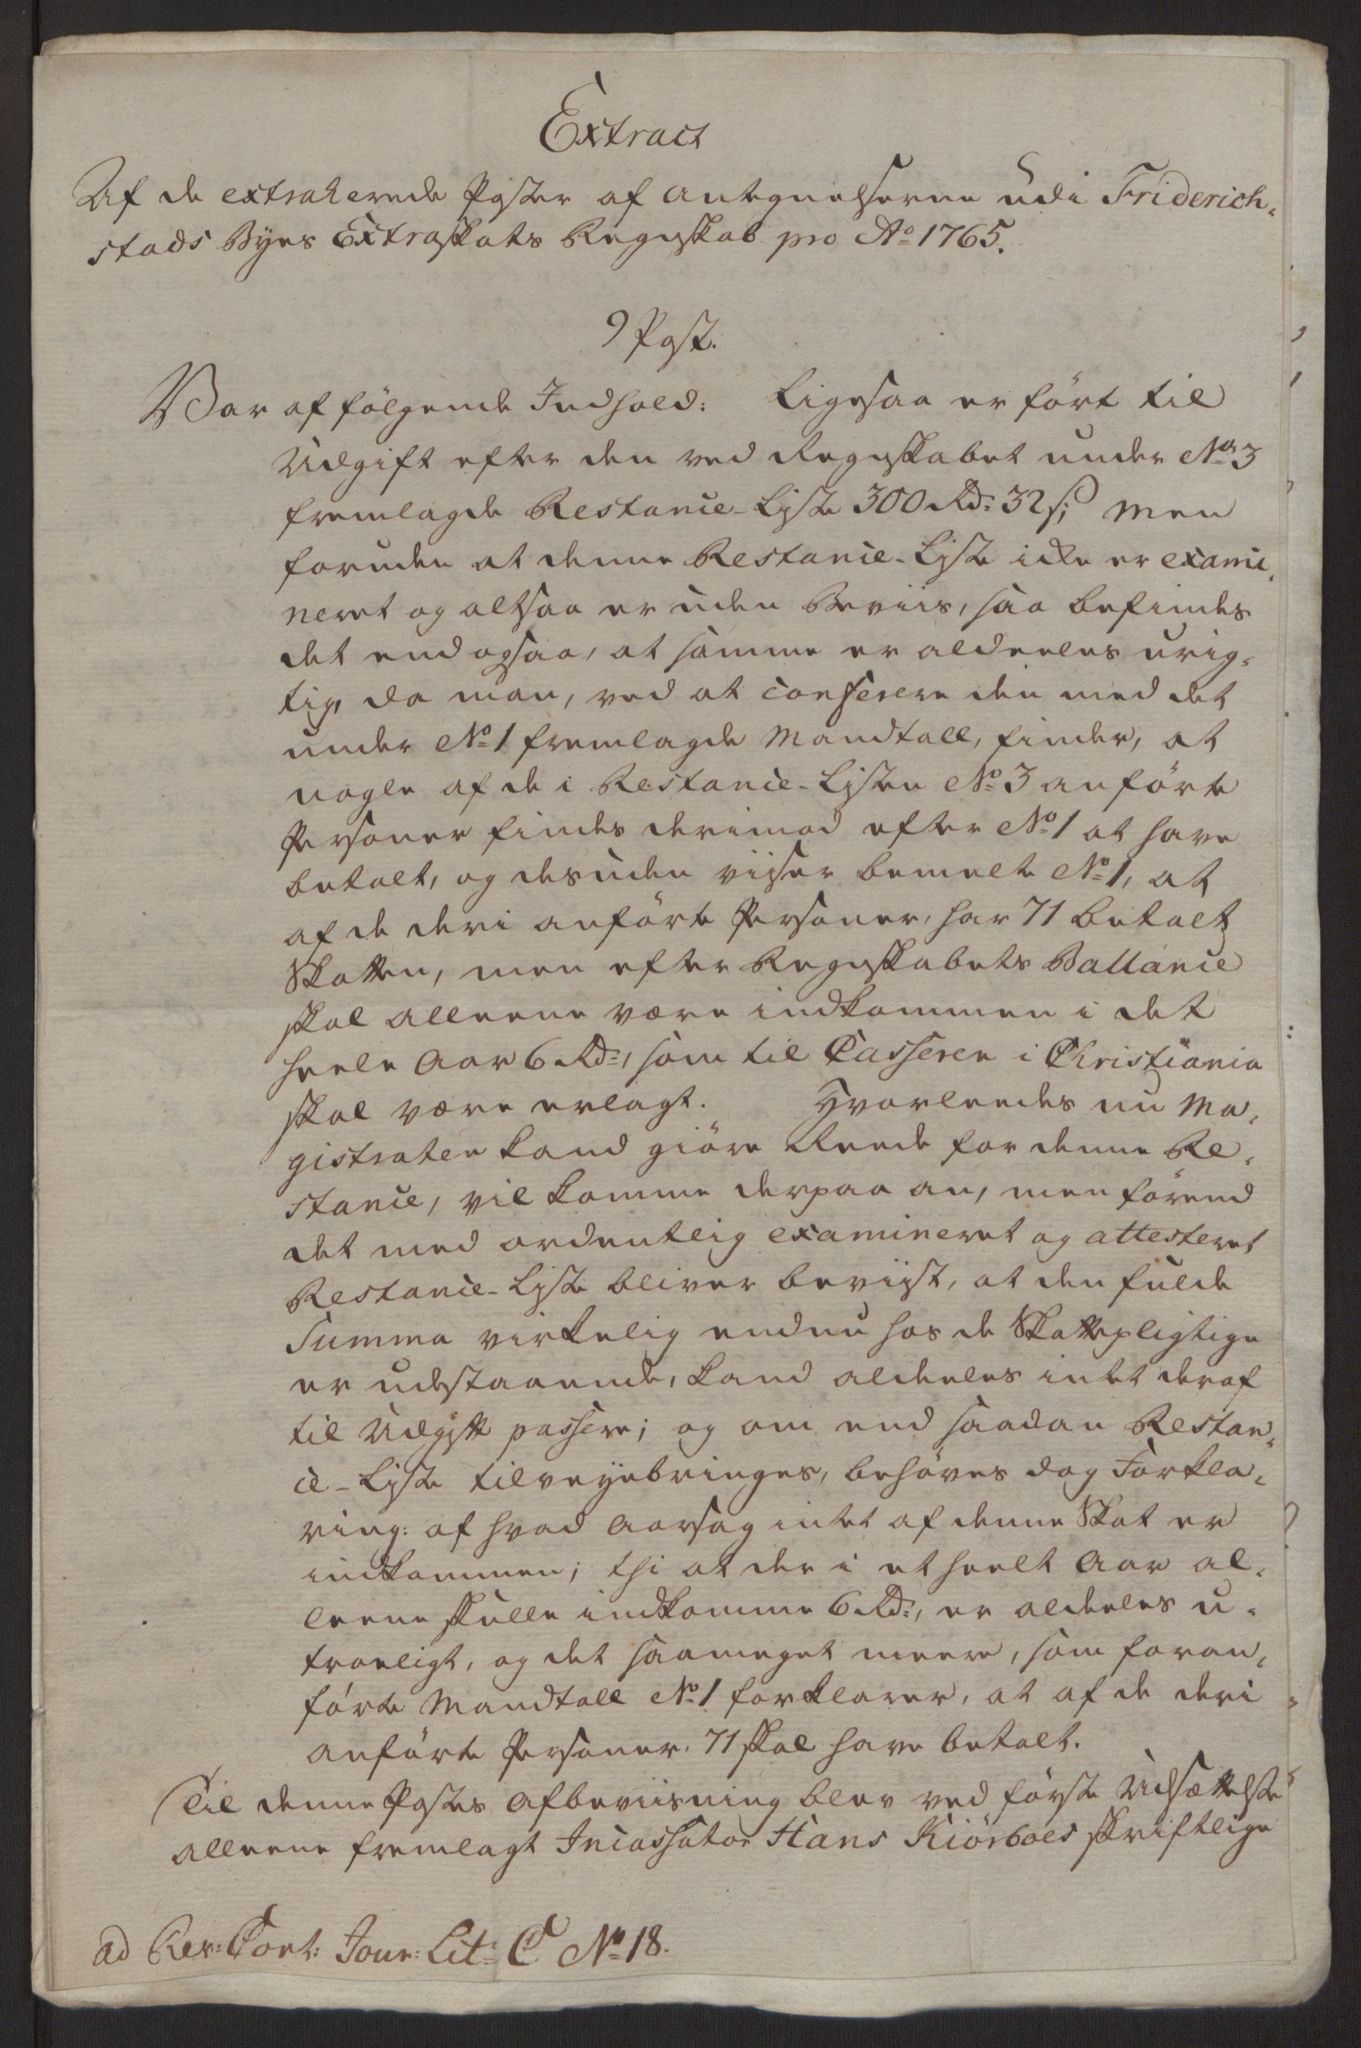 Extract
Af de extraherede Poster af Antegnelserne udi Friderich-
stads Byes Extraskats Regnskab pro Ao 1765.
9 Post.
Var af følgende Indhold: Ligesaa er ført til
Udgift efter den ved Regnskabet under No 3
fremlagde Restance-Liste 300 Rd: 32 s; men
foruden at denne Restance-Liste icke er exami-
neret og altsaa er uden Beviis, saa befindes
det end ogsaa, at samme er aldeeles urig-
tig, da man, ved at conferere den med det
under No 1 fremlagde Mandtall, finder, at
nogle af de i Restance-Listen No 3 anførte
Personer findes derimod efter No 1 at have
betalt, og desuden viiser bemelte No 1, at
af de deri anførte Personer, har 71 betalt
Skatten, men efter Regnskabets Ballance
skal alleene være indkommen i det
heele Aar 6 Rd:, som til Casseren i Christiania
skal være erlagt. Hvorleedes nu Ma-
gistraten kand giøre Reede for denne Re-
stance, vil komme derpaa an, men førend
det med ordentlig examineret og attesteret
Restance-Liste bliver beviist, at den fulde
Summa virkelig endnu hos de Skattepligtige
er udestaaende, kand aldeeles intet deraf
til Udgift passere; og om end saadan Restan-
ce-Liste tilveyebringes, behøves dog Forkla-
ring: af hvad Aarsag intet af denne Skat er
indkommen; thi at der i et heelt Aar al-
leene skulle indkomme 6 Rd:, er aldeeles u-
troeligt, og det saameget meere, som foran-
førte Mandtall No 1 forklarer, at af de deri
anførte Personer, 71 skal have betalt.
Til denne Postes Afbeviisning blev ved første Udsættelse
alleene fremlagt Incassator Hans Kiörboes skriftlige
ad Rev: Cont: Jour: Lit: C No 18.